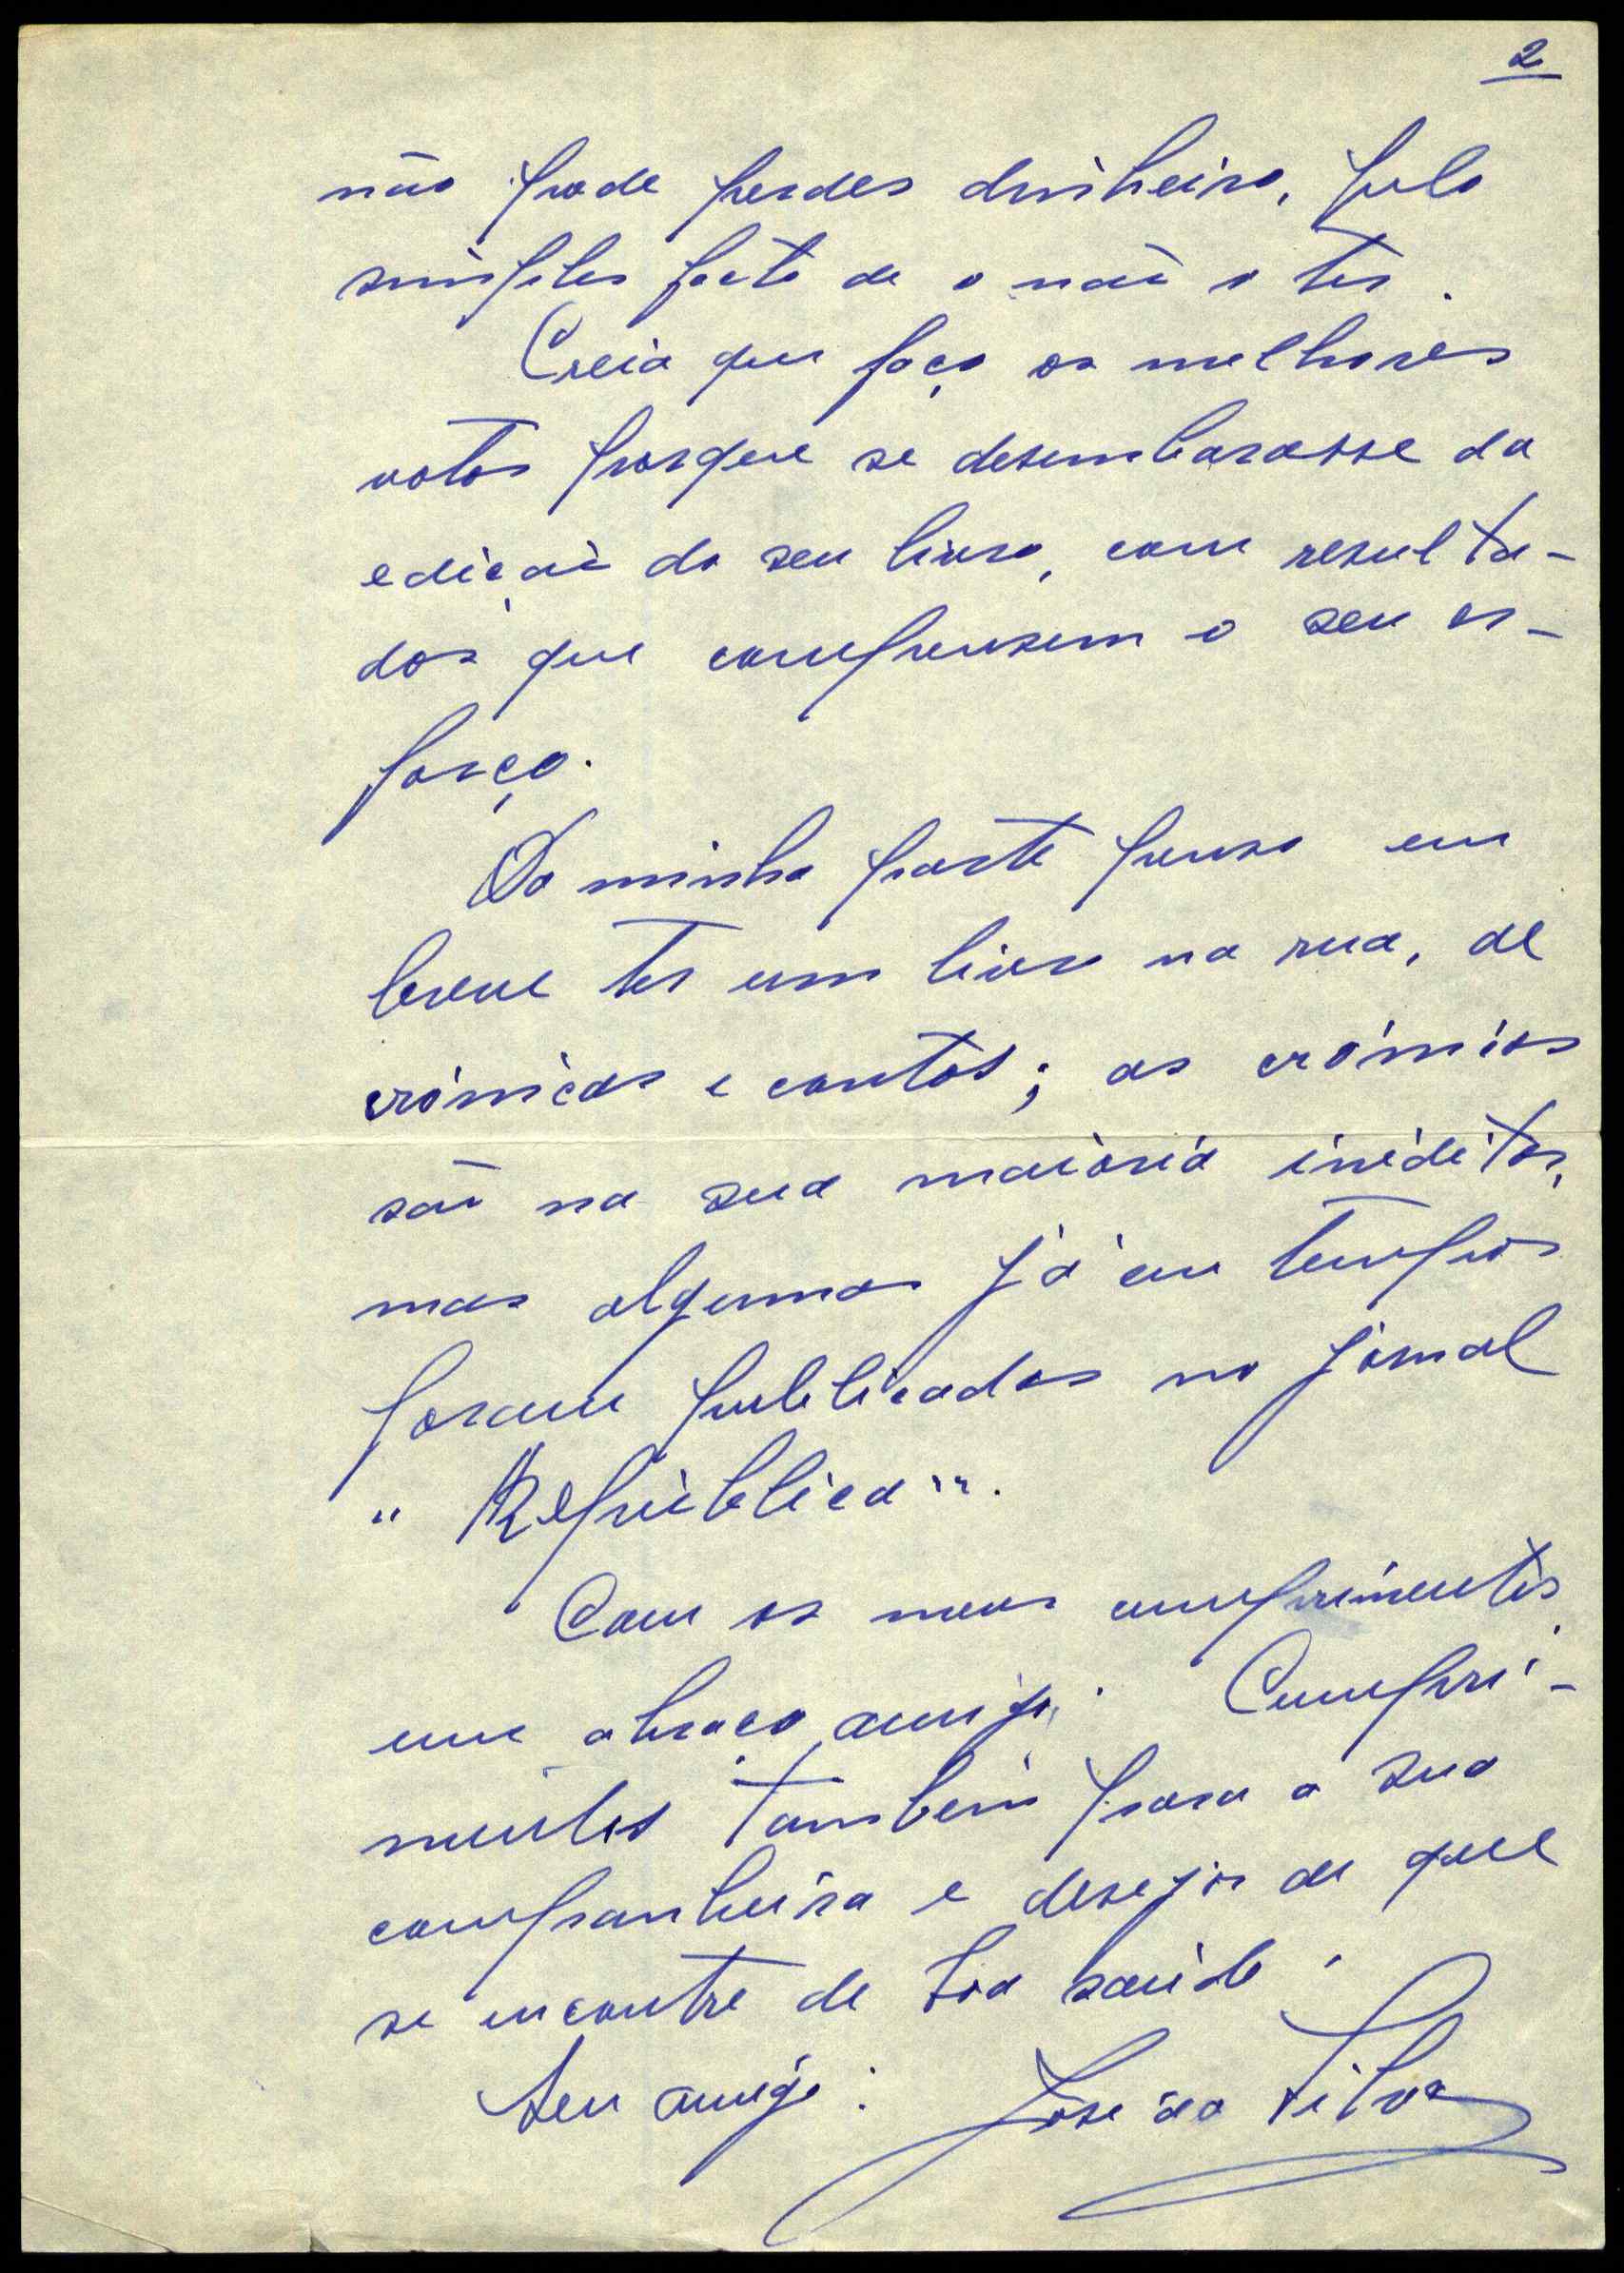 2
não pode perder dinheiro, pelo
simples facto de o não o ter.
Creia que faço os melhores
votos porque se desembarasse da
edição do seu livro, com resulta-
dos que compensem o seu es-
forço.
Da minha parte penso em
breve ter um livro na rua, de
crónicas e contos; as crónicas
são na sua maioria inéditas,
mas algumas já em tempos
foram publicadas no jornal
"República".
Com os meus cumprimentos,
um abraço amigo. Cumpri-
mentos também para a sua
companheira e desejos de que
se encontre de boa saúde.
Seu amigo: José da Silva